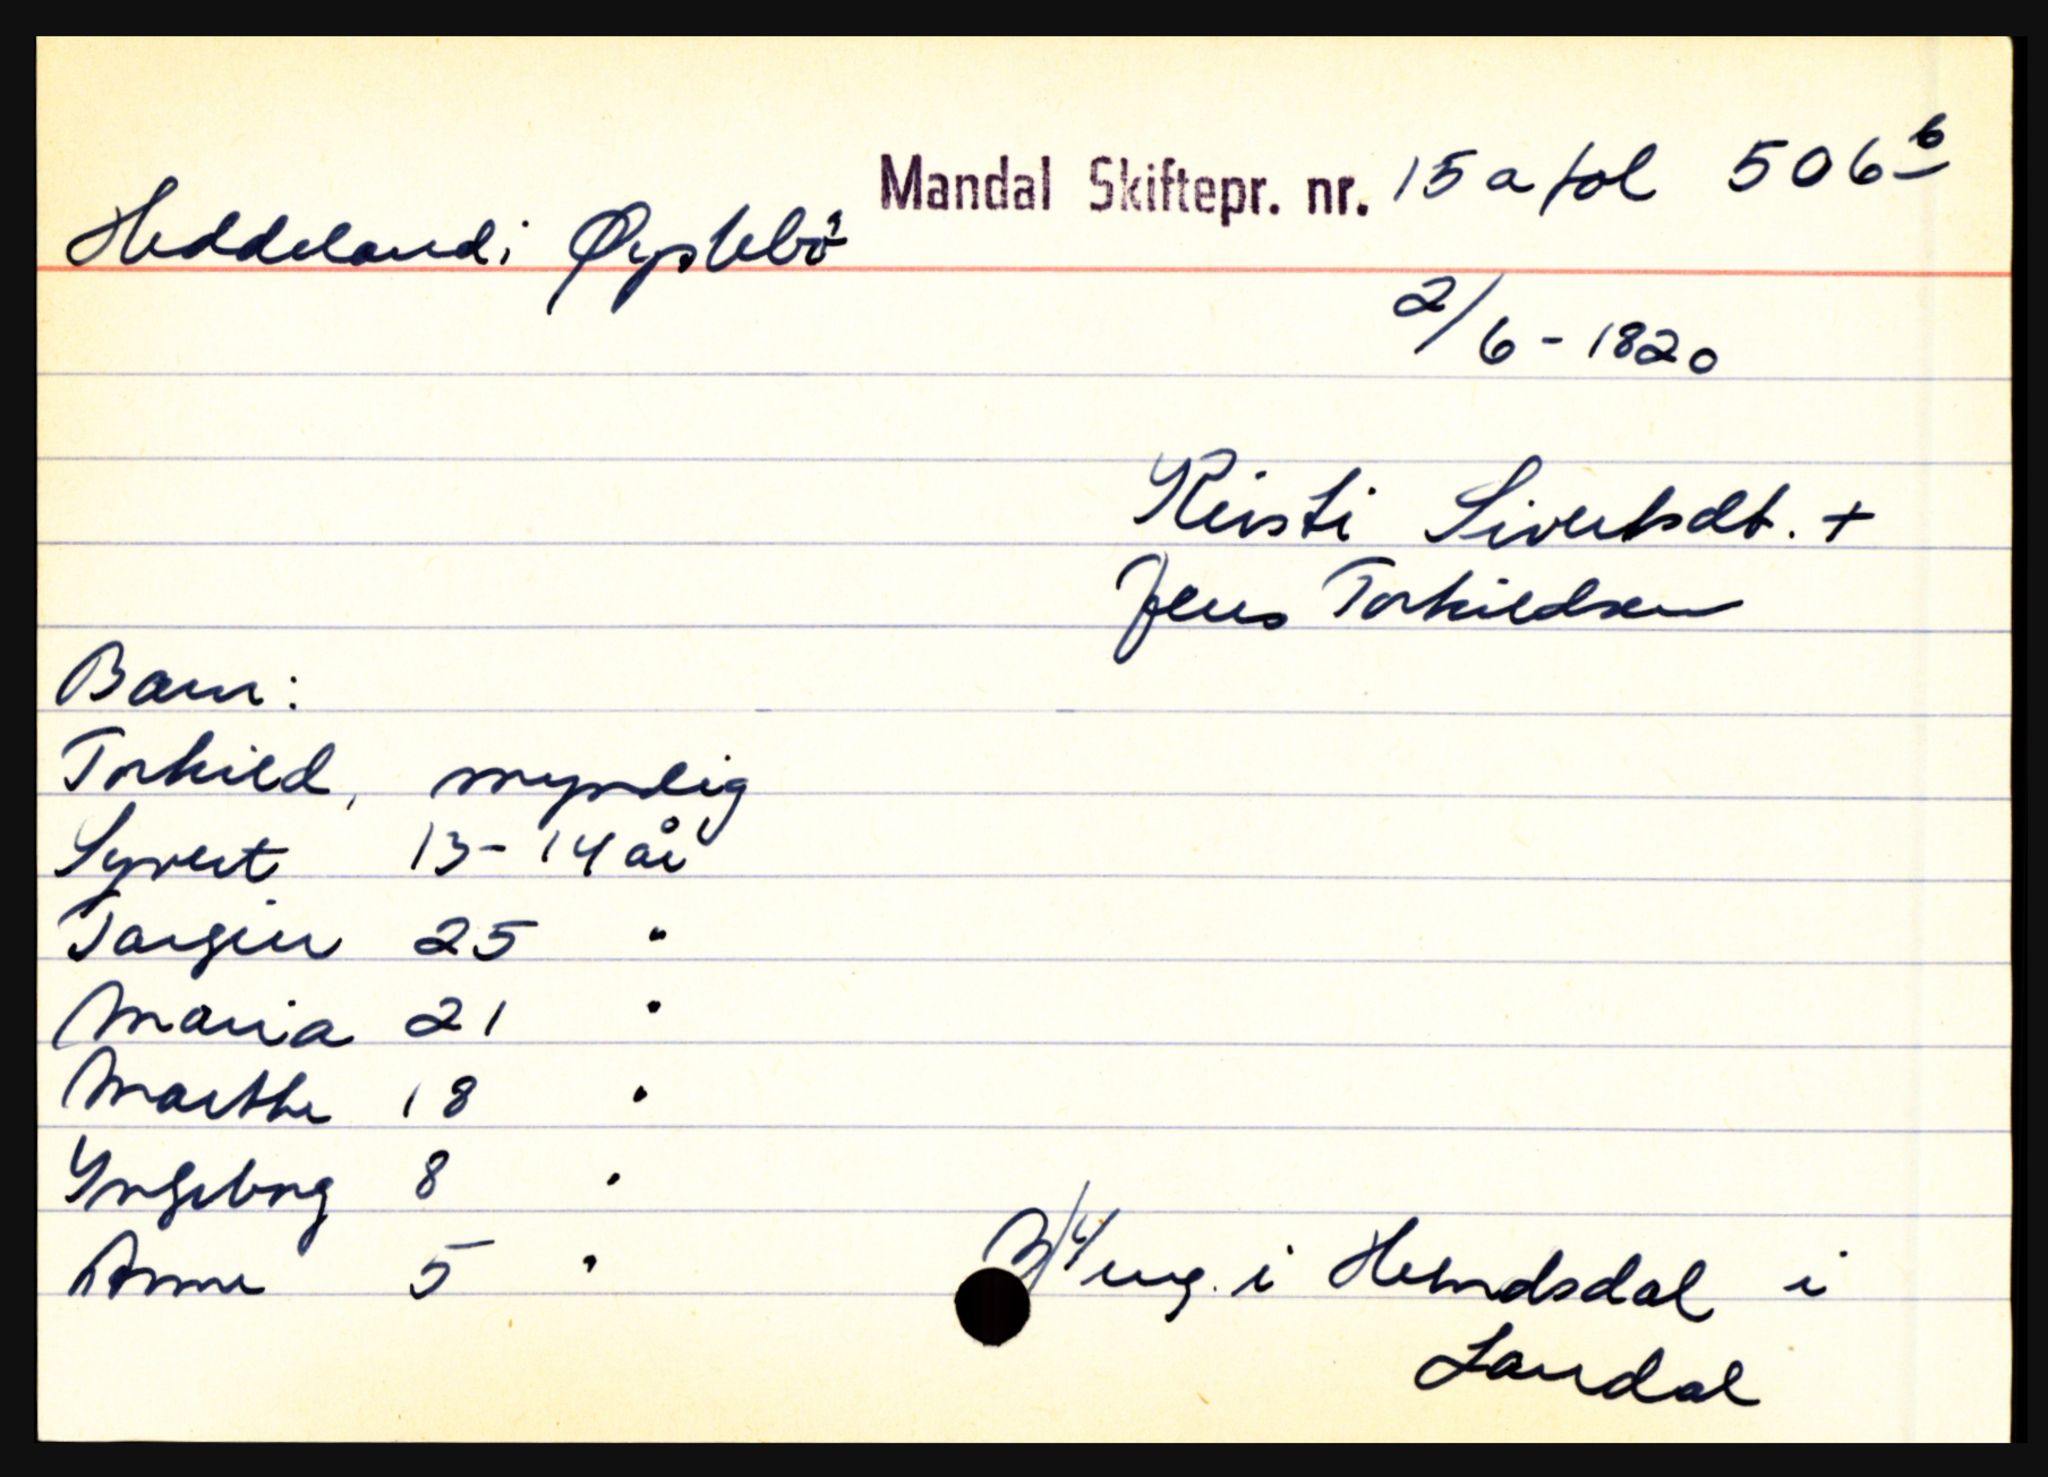 Mandal Skiftepr. nr. 15a fol 506b
Heddeland i Øyslebø
2/6 - 1820
Kirsti Sivertsdt. +
Jens Torkildsen
Barn:
Torkild, myndig
Syvert 13 - 14 år
Targier 25 "
Maria 21 "
Marthe 18 "
Yngeborg 8 "
Anne 5 "
3/4 eng. i Hemdsdal i
Laudal